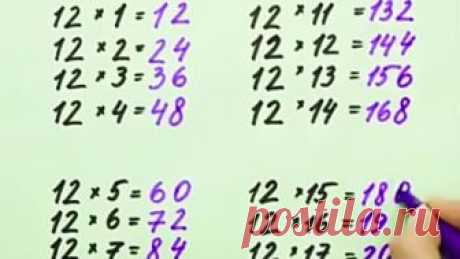 12 × 1 = 12
12 × 2 = 24
12 × 3 = 36
12 × 4 = 48
12 × 5 = 60
12 × 6 = 72
12 × 7 = 84
12 × 11 = 132
12 × 12 = 144
12 × 13 = 156
12 × 14 = 168
12 × 15 = 180
12 × 16 = 19
12 × 17 = 20
postila.ru